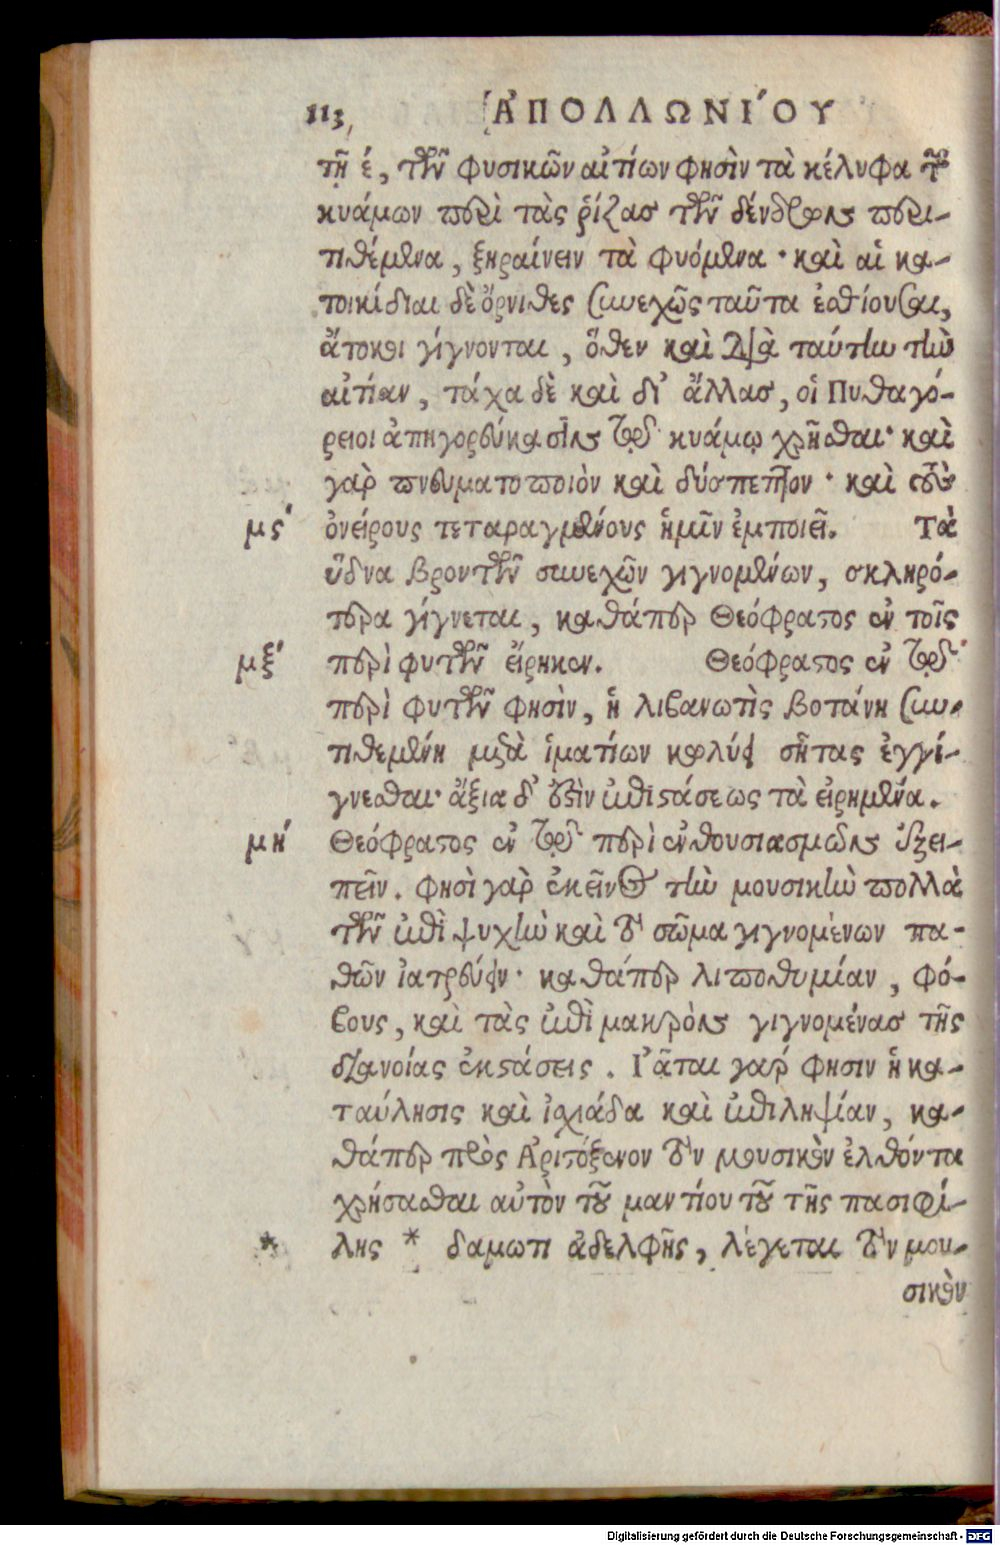 113 ἈΠΟΛΛΩΝΊΟΥ
τῇ έ, τῶν φυσικῶν αἰτίων φησὶν τὰ κέλυφα τῶν
κυάμων περὶ τὰς ῥίζας τῶν δένδροις περι-
τιθέμενα, ξηραίνειν τὰ φυόμενα · καὶ αἱ κα-
τοικίδιαι δὲ ὄρνιθες συνεχῶς ταῦτα ἐσθίουσαι,
ἄτοκοι γίγνονται, ὅθεν καὶ διὰ ταύτην τὴν
αἰτίαν, τάχα δὲ καὶ δι’ ἄλλας, οἱ Πυθαγό-
ρειοι ἀπηγορεύκασι τῷ κυάμῳ χρῆσθαι· καὶ
γὰρ πνευματοποιὸν καὶ δύσπεπτον · καὶ τοὺς
μς΄ ὀνείρους τεταραγμένους ἡμῖν ἐμποιεῖ. Τὰ
ὕδνα βροντῶν συνεχῶν γιγνομένων, σκληρό-
τερα γίγνεται, καθάπερ Θεόφραστος ἐν τοῖς
μξ΄ περὶ φυτῶν εἴρηκεν. Θεόφραστος ἐν τῷ
περὶ φυτῶν φησὶν, ἡ λιβανωτὶς βοτάνη συν-
τιθεμένη μετὰ ἱματίων κωλύει σῆτας ἐγγί-
γνεσθαι· ἄξια δ’ ἐστὶν ἐπιστάσεως τὰ εἰρημένα.
μή Θεόφραστος ἐν τῷ περὶ ἐνθουσιασμῶν ἐξει-
πεῖν. φησὶ γὰρ ἐκεῖνος τὴν μουσικὴν πολλὰ
τῶν ἐπὶ ψυχὴν καὶ τὸ σῶμα γιγνομένων πα-
θῶν ἰατρεύειν· καθάπερ λιποθυμίαν, φό-
βους, καὶ τὰς ἐπὶ μακρὸν γιγνομένας τῆς
διανοίας ἐκστάσεις. Ἰᾶται γάρ φησιν ἡ κα-
ταύλησις καὶ ἰσχιάδα καὶ ἐπιληψίαν, κα-
θάπερ πρὸς Ἀριστόξενον τὸν μουσικὸν ἐλθόντα
χρήσασθαι αὐτὸν τοῦ μαντίου τοῦ τῆς πασιφί-
* λης * δαμωτι ἀδελφῆς, λέγεται τὸν μου-
σικὸν
Digitalisierung gefördert durch die Deutsche Forschungsgemeinschaft - DFG